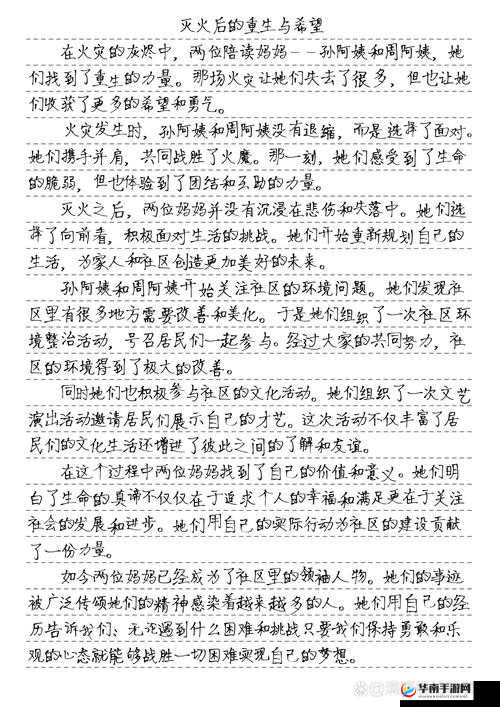 灭火后的重生与希望
在火灾的灰烬中，两位陪读妈妈--孙阿姨和周阿姨，她
们找到了重生的力量。那场火灾让她们失去了很多，但也让她
们收获了更多的希望和勇气。
火灾发生时，孙阿姨和周阿姨没有退缩，而是选择了面对。
她们携手并肩，共同战胜了火魔。那一刻，她们感受到了生命
的脆弱，但也体验到了团结和互助的力量。
灭火之后，两位妈妈并没有沉浸在悲伤和失落中。她们选
择了向前看，积极面对生活的挑战。她们开始重新规划自己的
生活，为家人和社区创造更加美好的未来。
孙阿姨和周阿姨开始关注社区的环境问题。她们发现社
区里有很多地方需要改善和美化。于是她们组织了一次社区环
境整治活动，号召居民们一起参与。经过大家的共同努力，社
区的环境得到了极大的改善。
同时她们也积极参与社区的文化活动。她们组织了一次文艺
演出活动邀请居民们展示自己的才艺。这次活动不仅丰富了居
民们的文化生活还增进了彼此之间的了解和友谊。
在这个过程中两位妈妈找到了自己的价值和意义。她们明
白了生命的真谛不仅仅在于追求个人的幸福和满足更在于关注
社会的发展和进步。她们用自己的实际行动为社区的建设贡献
了一份力量。
如今两位妈妈已经成为了社区里的领袖人物。她们的事迹
被广泛传颂她们的精神感染着越来越多的人。她们用自己的经
历告诉我们：无论遇到什么困难和挑战只要我们保持勇敢和乐
观的心态就能够战胜一切困难实现自己的梦想。
华南手游网